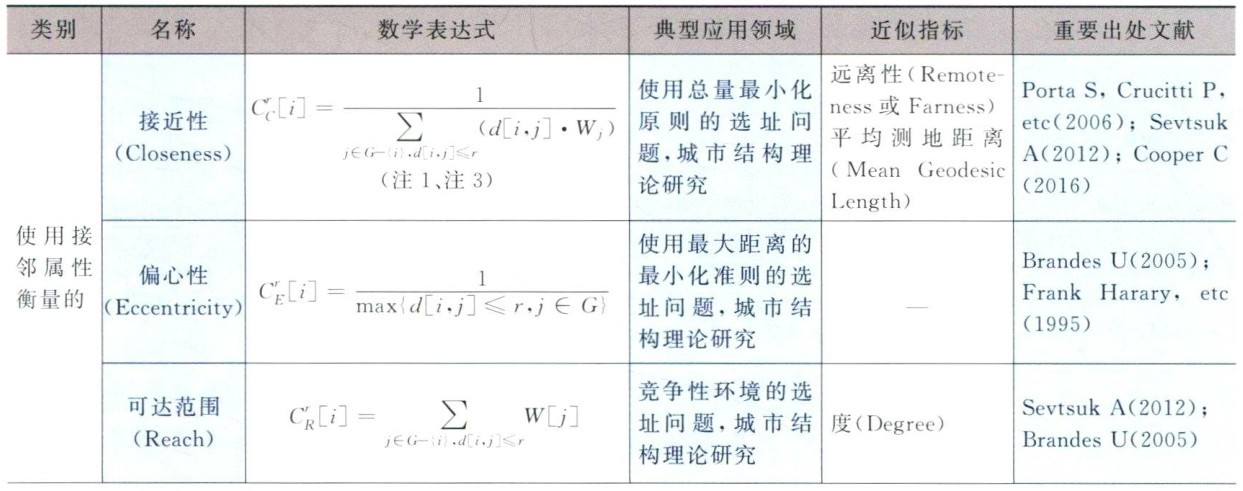 类别 名称 数学表达式 典型应用领域 近似指标 重要出处文献
使用接
邻属性
衡量的
接近性
(Closeness)
C_C^r[i] = 1 / ∑_{j∈G−{i},d[i,j]⩽r} (d[i,j]·W_j)
(注1、注3)
使用总量最小化
原则的选址问
题,城市结构理
论研究
远离性(Remote-
ness或Farness)
平均测地距离
(Mean Geodesic
Length)
Porta S, Crucitti P,
etc(2006); Sevtsuk
A(2012); Cooper C
(2016)
偏心性
(Eccentricity)
C_E^r[i] = 1 / max{d[i,j]⩽r,j∈G}
使用最大距离的
最小化准则的选
址问题,城市结
构理论研究
—
Brandes U(2005);
Frank Harary, etc
(1995)
可达范围
(Reach)
C_R^r[i] = ∑_{j∈G−{i},d[i,j]⩽r} W[j]
竞争性环境的选
址问题,城市结
构理论研究
度(Degree)
Sevtsuk A(2012);
Brandes U(2005)